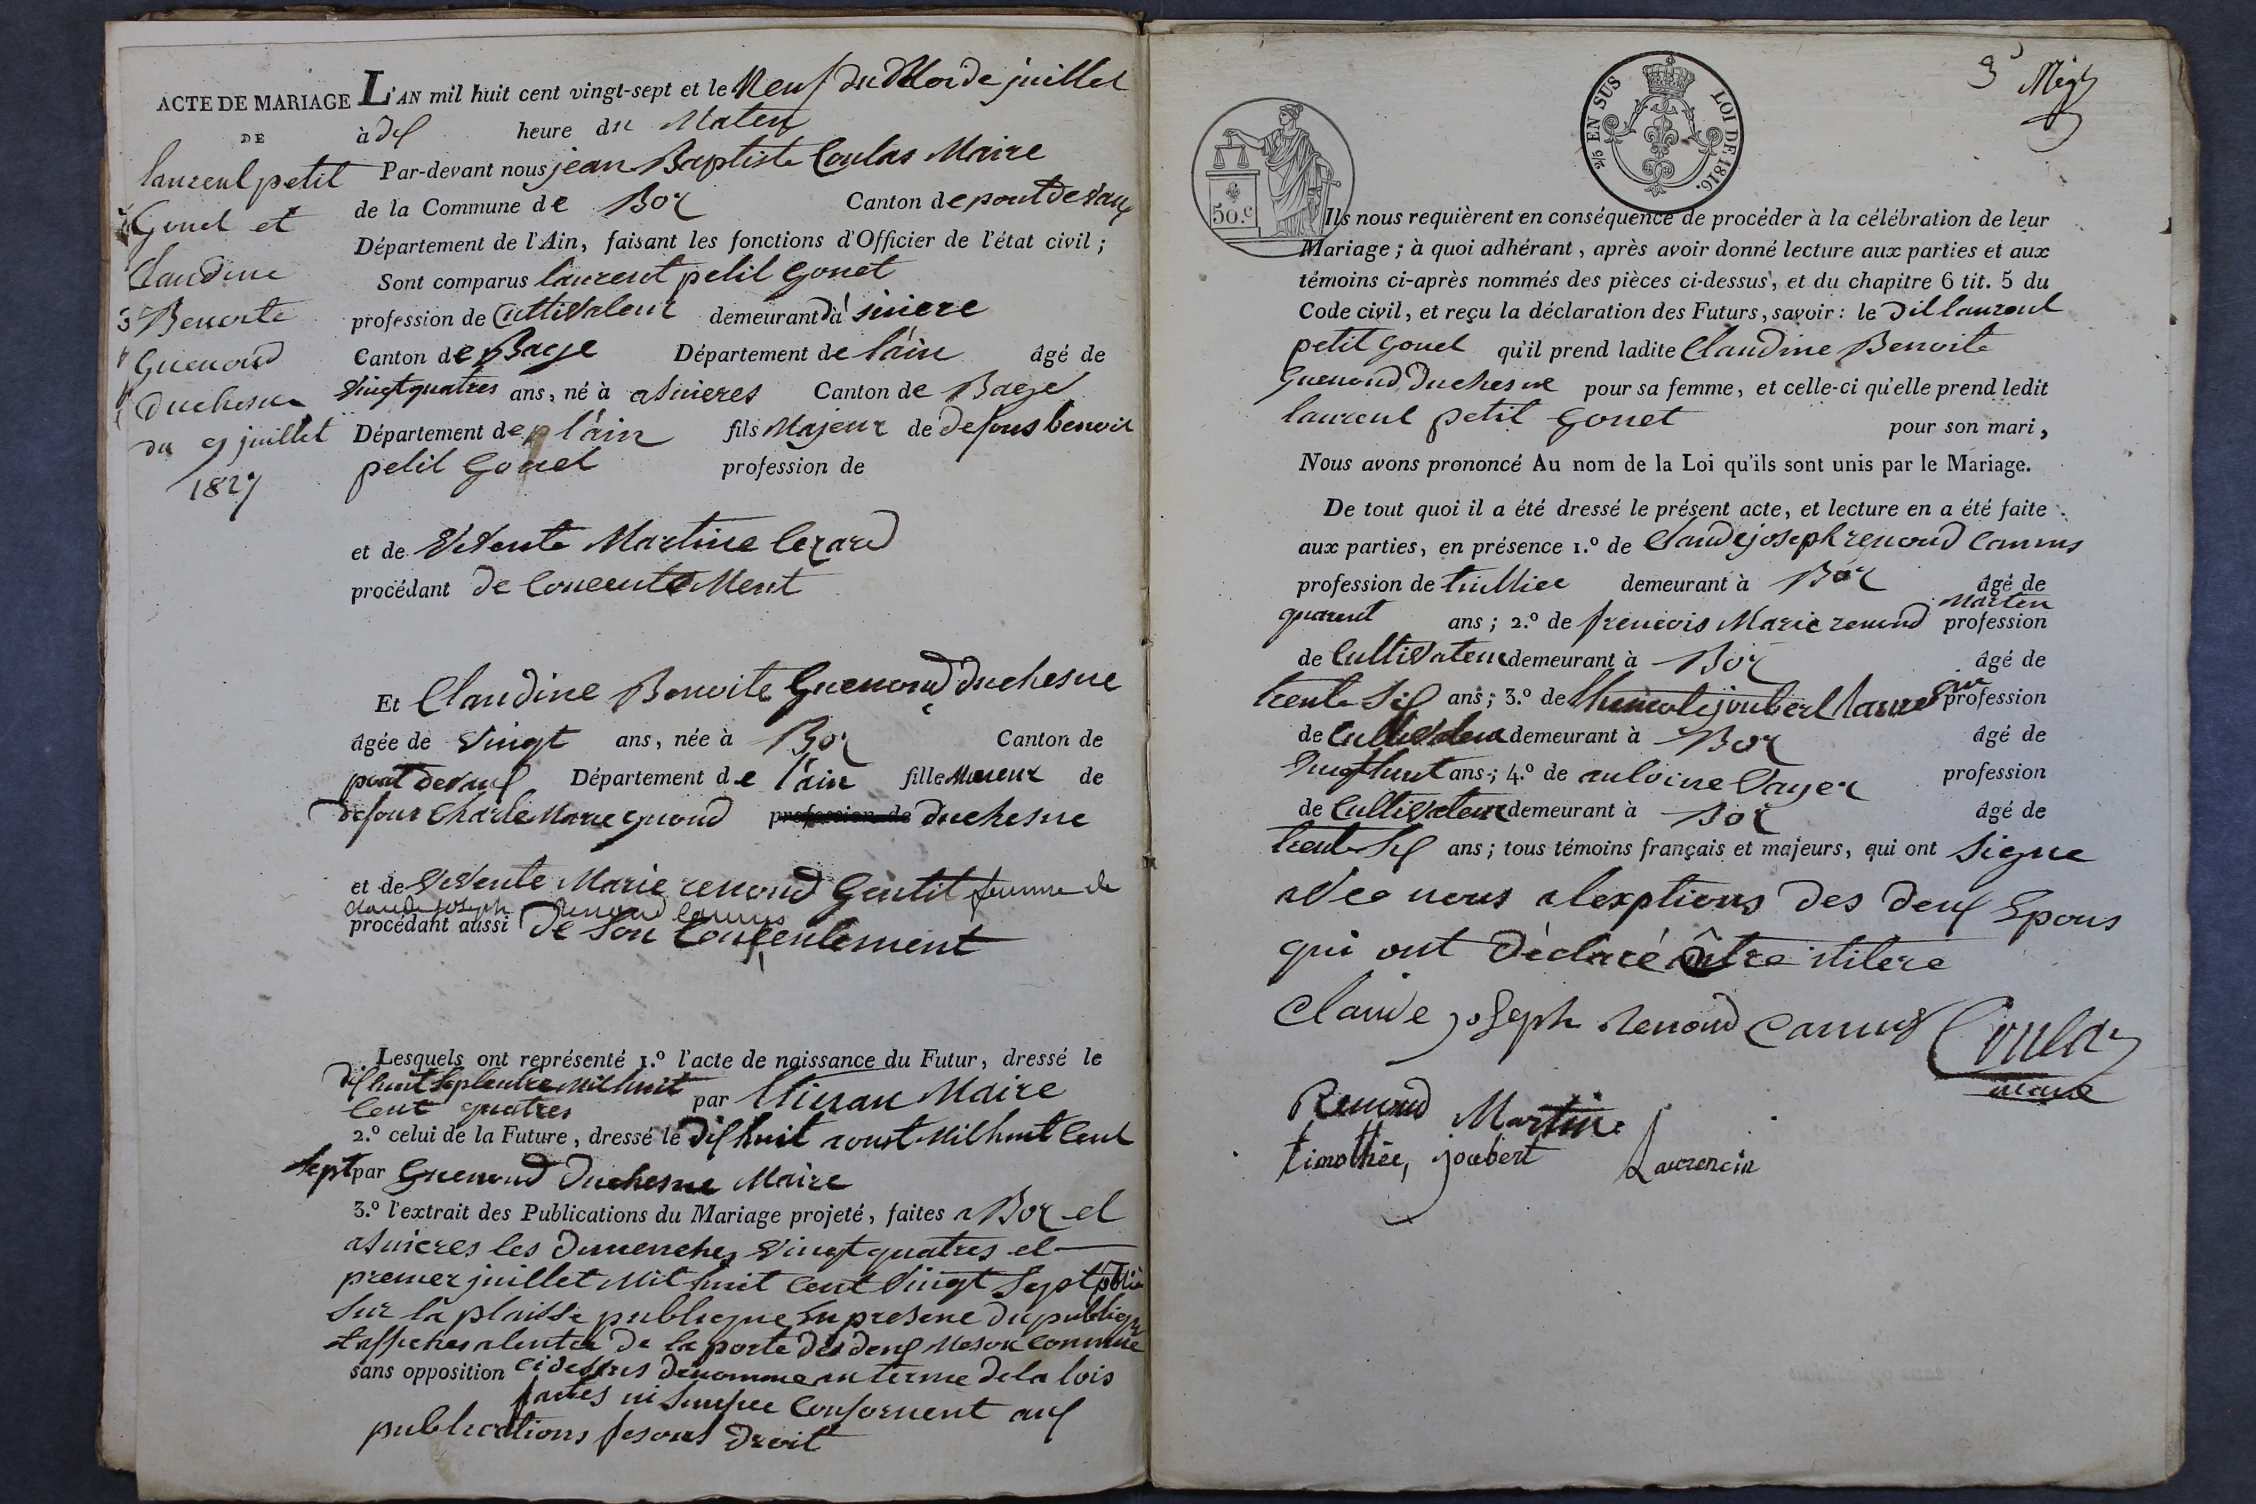 ACTE DE MARIAGE
DE
laurent petit
Gonet et
Claudine
Benoite
Guenoud
duchesne
du 9 juillet
1827
L'AN mil huit cent vingt-sept et le Neuf du Mois de juillet
à dix heure du Maten
Par-devant nous jean Baptiste Coulas Maire
de la Commune de Boz Canton de pont de vaux
Département de l'Ain, faisant les fonctions d'Officier de l'état civil ;
Sont comparus laurent petit gonet
profession de Cultivateur demeurant à
Canton de Bage Département de l'ain âgé de
vingt quatres ans, né à asnieres Canton de Bage
Département de l'ain fils Majeur de defons benoit
petit Gonet profession de
et de vivente Martine Cezard
procédant de Concentement
Et Claudine Benoite Guenoud duchesne
âgée de vingt ans, née à Boz Canton de
pont de vaux Département de l'ain fille de
defons Charle Marie duchesne
et de vivente Marie renoud Gentit femme de
claude joseph renoud camus
procédant aussi de son Consentement
Lesquels ont représenté 1.º l'acte de naissance du Futur, dressé le
dix huit Septenbre Mil huit
Cent quatres par Maire
2.º celui de la Future, dressé le dix huit aoust Mil huit Cent
sept par Guenoud duchesne Maire
3.º l'extrait des Publications du Mariage projeté, faites a Boz et
asnieres les dimenches vingt quatres et
premier juillet Mil huit Cent vingt Sept
sur la plaisse publique En presene du publique
affiches de la porte des deux Meson Commune
sans opposition ci dessus denomme au terme de la lois
publications fesons droit
2/5 EN SUS LOI DE 1816.
50.c
Ils nous requièrent en conséquence de procéder à la célébration de leur
Mariage ; à quoi adhérant, après avoir donné lecture aux parties et aux
témoins ci-après nommés des pièces ci-dessus, et du chapitre 6 tit. 5 du
Code civil, et reçu la déclaration des Futurs, savoir : le dit laurent
petit gonet qu'il prend ladite Claudine Benoite
Guenoud duchesne pour sa femme, et celle-ci qu'elle prend ledit
laurent petit gonet pour son mari,
Nous avons prononcé Au nom de la Loi qu'ils sont unis par le Mariage.
De tout quoi il a été dressé le présent acte, et lecture en a été faite
aux parties, en présence 1.º de Claude joseph renoud camus
profession de demeurant à Boz âgé de
quarent ans ; 2.º de frencois Marie renoud Marten profession
de Cultivateur demeurant à Boz âgé de
trente Six ans ; 3.º de joubert profession
de Cultivateur demeurant à Boz âgé de
vingt huit ans ; 4.º de antoine profession
de Cultivateur demeurant à Boz âgé de
trente Six ans ; tous témoins français et majeurs, qui ont signe
avec nous a lexptions des deux Epous
qui ont déclaré être ilitere
Claude joseph renoud camus Coulas
maire
Renoud Martin
timothée, joubert Laurencin